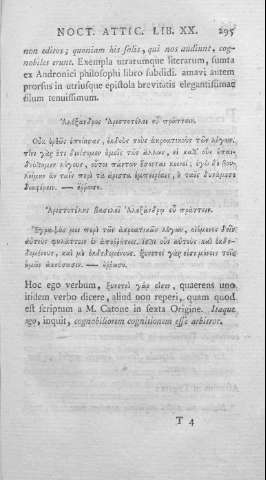 NOCT. ATTIC. LIB. XX. 295
non editos; quoniam his solis, qui nos audiunt, cog-
nobiles erunt. Exempla utrarumque literarum, sumta
ex Andronici philosophi libro subdidi. amavi autem
prorsus in utriusque epistola brevitatis elegantissimae
filum tenuissimum.
Ἀλέξανδρος Ἀριστοτέλει εὖ πράττειν.
Οὐκ ὀρθῶς ἐποίησας, ἐκδοὺς τοὺς ἀκροατικοὺς τῶν λόγων.
τίνι γὰρ ἔτι διοίσομεν ἡμεῖς τῶν ἄλλων, εἰ καθ' οὓς ἐπαι-
δεύθημεν λόγους, οὗτοι πάντων ἔσονται κοινοί; ἐγὼ δὲ βου-
λοίμην ἂν ταῖς περὶ τὰ ἄριστα ἐμπειρίαις, ἢ ταῖς δυνάμεσι
διαφέρειν. — ἔρρωσο.
Ἀριστοτέλης βασιλεῖ Ἀλεξάνδρῳ εὖ πράττειν.
Ἔγραψάς μοι περὶ τῶν ἀκροατικῶν λόγων, οἰόμενος δεῖν
αὐτοὺς φυλάττειν ἐν ἀποῤῥήτοις. ἴσθι οὖν αὐτοὺς καὶ ἐκδε-
δομένους, καὶ μὴ ἐκδεδομένους. ξυνετοὶ γάρ εἰσι μόνοις τοῖς
ἡμῶν ἀκούσασιν. — ἔρρωσο.
Hoc ego verbum, ξυνετοὶ γάρ εἰσιν, quaerens uno
itidem verbo dicere, aliud non reperi, quam quod
est scriptum a M. Catone in sexta Origine. Itaque
ego, inquit, cognobiliorem cognitionem esse arbitror.
T 4